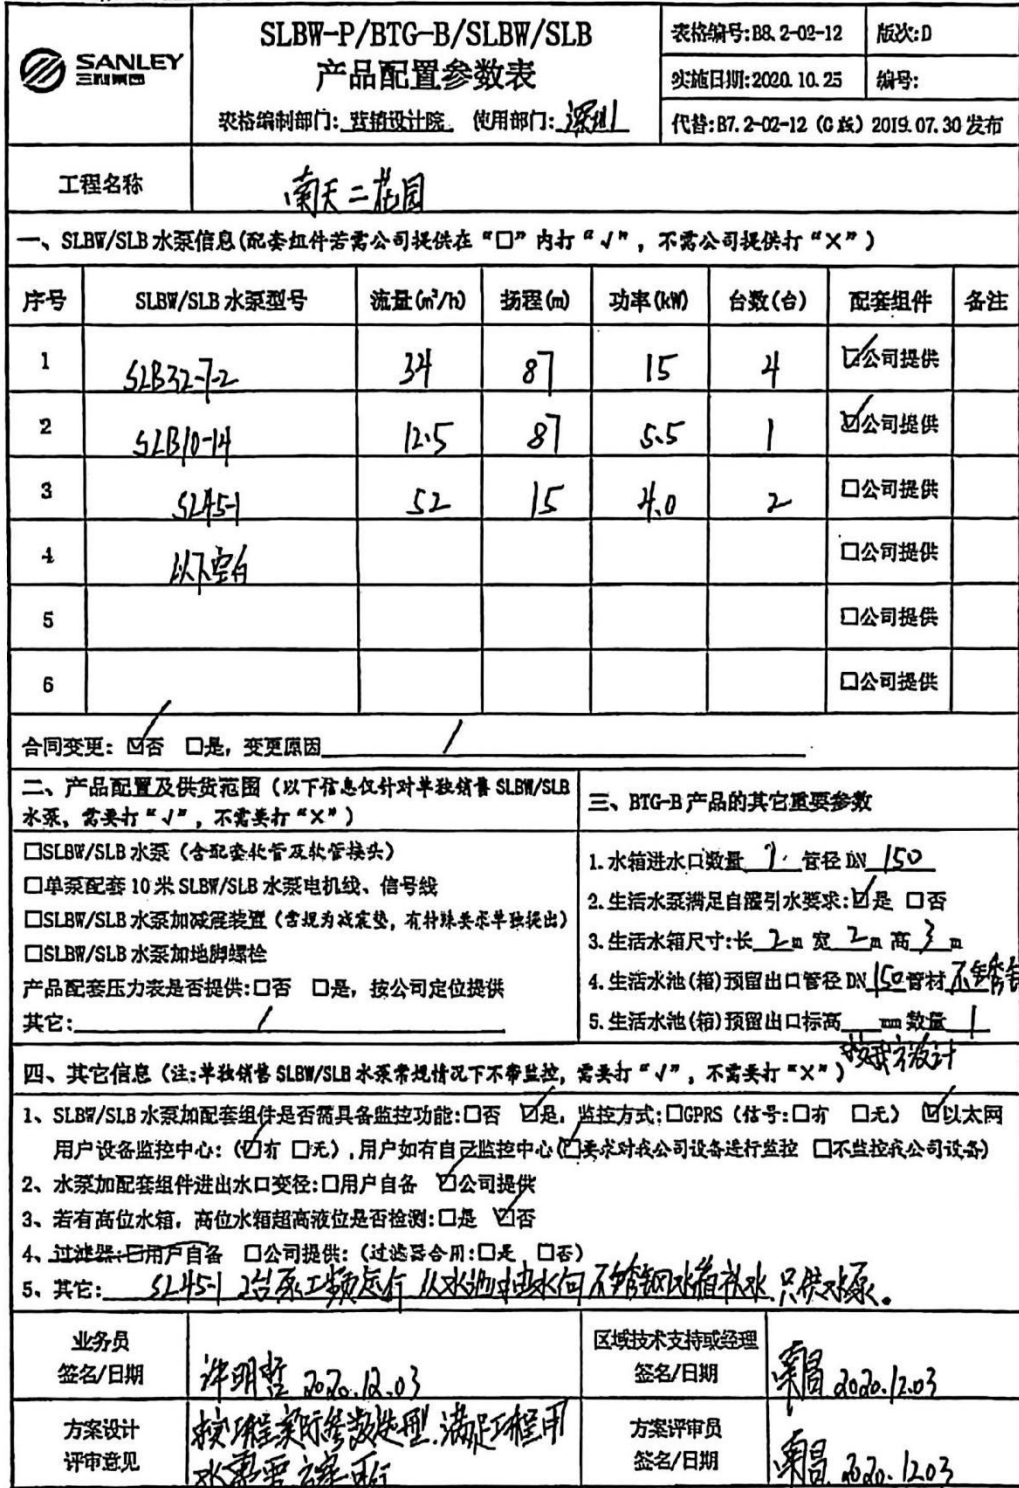 SANLEY
三利集团
SLBW-P/BTG-B/SLBW/SLB
产品配置参数表
表格编制部门: 营销设计院 使用部门: 深圳
表格编号:B8.2-02-12 版次:D
实施日期:2020.10.25 编号:
代替:B7.2-02-12 (C版) 2019.07.30 发布
工程名称 南天二花园
一、SLBW/SLB 水泵信息(配套组件若需公司提供在“□”内打“√”，不需公司提供打“×”)
序号 SLBW/SLB 水泵型号 流量(m³/h) 扬程(m) 功率(kW) 台数(台) 配套组件 备注
1 SLB32-7-2 34 87 15 4 ☑公司提供
2 SLB10-14 12.5 87 5.5 1 ☑公司提供
3 SL45-1 52 15 4.0 2 □公司提供
4 以下空白 □公司提供
5 □公司提供
6 □公司提供
合同变更: ☑否 □是，变更原因 /
二、产品配置及供货范围（以下信息仅针对单独销售 SLBW/SLB
水泵，需要打“√”，不需要打“×”）
□SLBW/SLB 水泵（含配套软管及软管接头）
□单泵配套 10 米 SLBW/SLB 水泵电机线、信号线
□SLBW/SLB 水泵加减震装置（常规为减震垫，有特殊要求单独提出）
□SLBW/SLB 水泵加地脚螺栓
产品配套压力表是否提供:□否 □是，按公司定位提供
其它: /
三、BTG-B 产品的其它重要参数
1.水箱进水口数量 1 管径 DN 150
2.生活水泵满足自灌引水要求:☑是 □否
3.生活水箱尺寸:长 2 m 宽 2 m 高 3 m
4.生活水池(箱)预留出口管径 DN 150 管材 不锈钢
5.生活水池(箱)预留出口标高 mm 数量 1
按我方设计
四、其它信息（注:单独销售 SLBW/SLB 水泵常规情况下不带监控，需要打“√”，不需要打“×”）
1、SLBW/SLB 水泵加配套组件是否需具备监控功能:□否 ☑是，监控方式:□GPRS（信号:□有 □无） ☑以太网
用户设备监控中心:（☑有 □无）,用户如有自己监控中心(☑要求对我公司设备进行监控 □不监控我公司设备)
2、水泵加配套组件进出水口变径:□用户自备 ☑公司提供
3、若有高位水箱，高位水箱超高液位是否检测:□是 ☑否
4、过滤器:□用户自备 □公司提供:（过滤器合用:□是 □否）
5、其它: SL45-1 2台泵工频运行 从水池抽水向不锈钢水箱补水 只供水泵。
业务员
签名/日期
许明哲 2020.12.03
区域技术支持或经理
签名/日期
2020.12.03
方案设计
评审意见
按工程实际参数选型,满足工程用
水需要 方案可行
方案评审员
签名/日期
2020.12.03